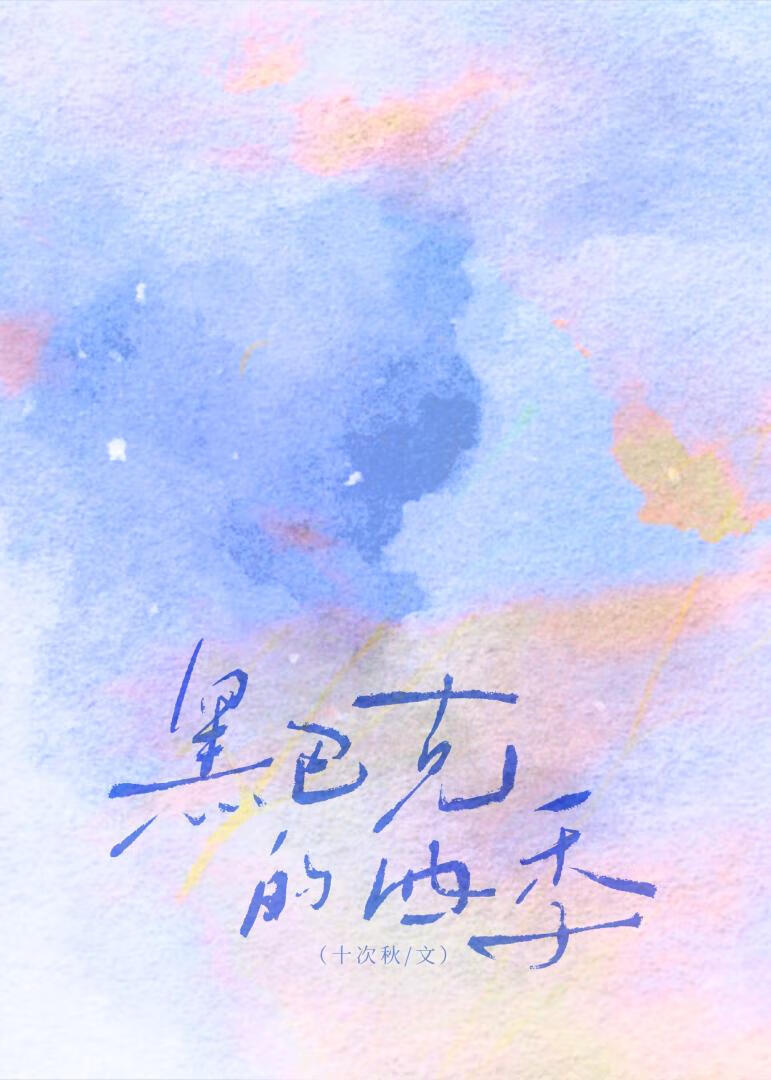 黑巴克
的季
（十次秋/文）